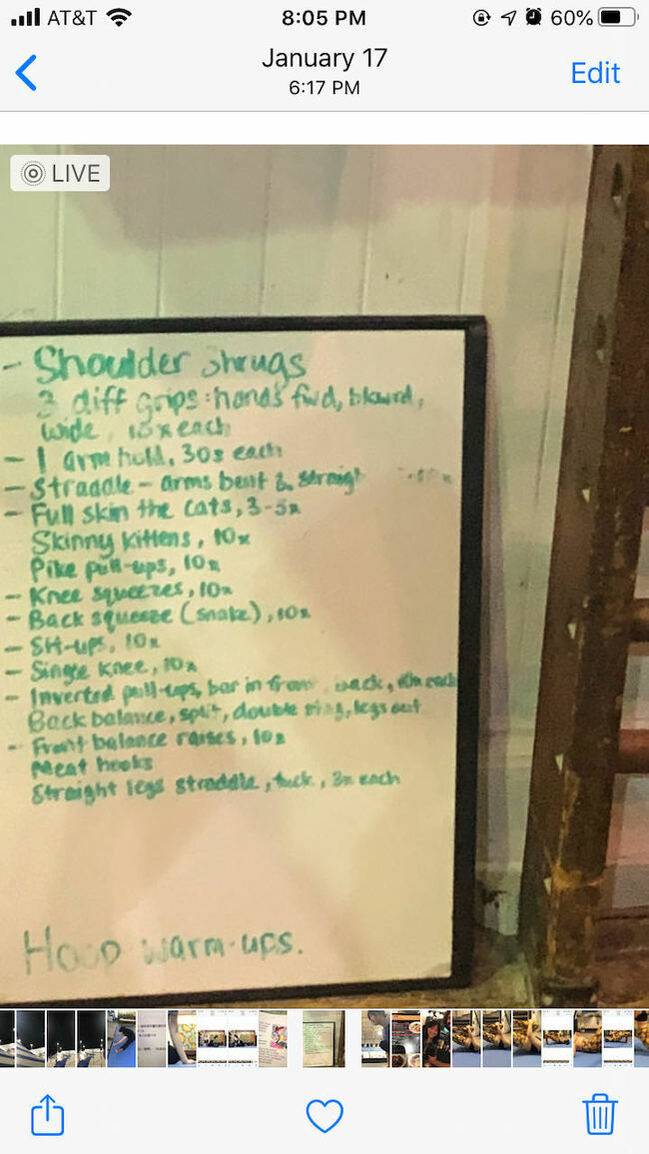 AT&T 8:05 PM 60%
January 17
6:17 PM
Edit
LIVE
- Shoulder Shrugs
3 diff grips: hands fwd, bkwrd,
wide, 15x each
- 1 arm hold, 30s each
- Straddle - arms bent & straight
- Full skin the cats, 3-5x
Skinny kittens, 10x
Pike pull-ups, 10x
- Knee squeezes, 10x
- Back squeeze (snake), 10x
- Sit-ups, 10x
- Single knee, 10x
- Inverted pull-ups, bar in front, back, 10x each
Back balance, split, double ring, legs out
- Front balance raises, 10x
Meat hooks
Straight legs straddle, tuck, 3x each
Hoop warm-ups.